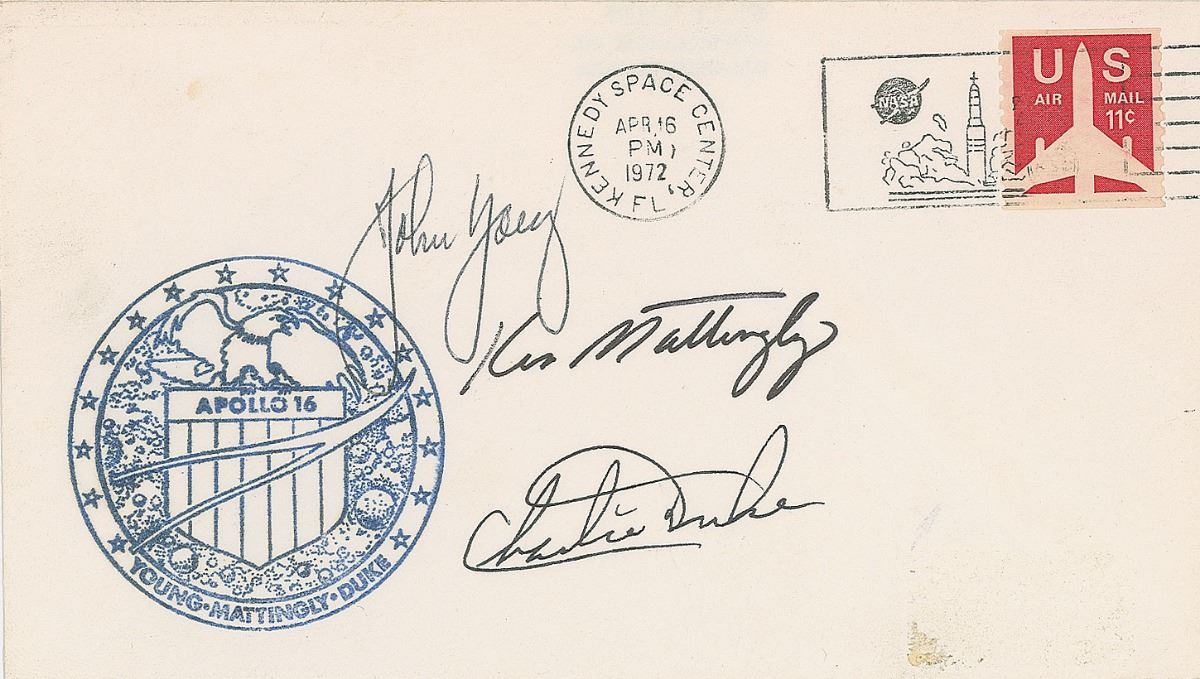 KENNEDY SPACE CENTER, FL
APR 16
PM
1972
NASA
US
AIR MAIL
11¢
John Young
Ken Mattingly
Charlie Duke
APOLLO 16
YOUNG·MATTINGLY·DUKE